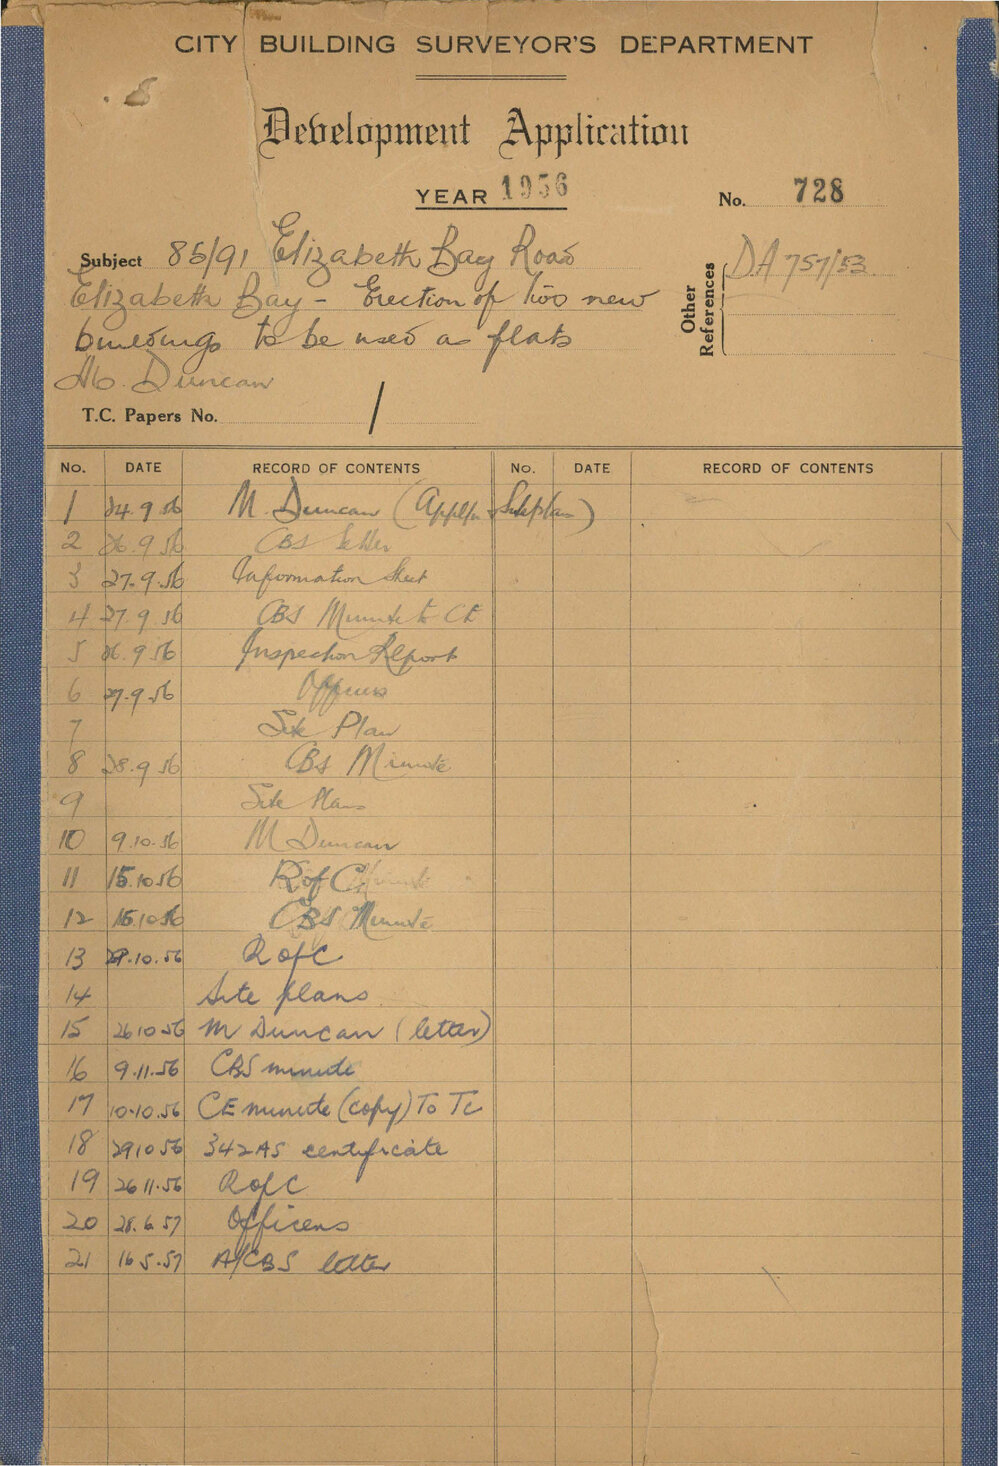 CITY BUILDING SURVEYOR'S DEPARTMENT
Development Application
YEAR 1956
No. 728
Subject 85/91 Elizabeth Bay Road
Elizabeth Bay - Erection of two new
buildings to be used as flats
Duncan
T.C. Papers No. /
Other References DA 757/53
No. DATE RECORD OF CONTENTS No. DATE RECORD OF CONTENTS
1 24.9.56 M. Duncan (Applfn & Siteplan)
2 26.9.56 CBS letter
3 27.9.56 Information Sheet
4 27.9.56 CBS Minute to CE
5 26.9.56 Inspection Report
6 27.9.56 Officers
7 Site Plan
8 28.9.56 CBS Minute
9 Site Plans
10 9.10.56 M Duncan
11 15.10.56 RofC
12 15.10.56 CBS Minute
13 29.10.56 RofC
14 Site plans
15 26.10.56 M Duncan (letter)
16 9.11.56 CBS minute
17 10.10.56 CE minute (copy) To TC
18 29.10.56 342AS certificate
19 26.11.56 RofC
20 28.6.57 Officers
21 16.5.57 A/CBS letter